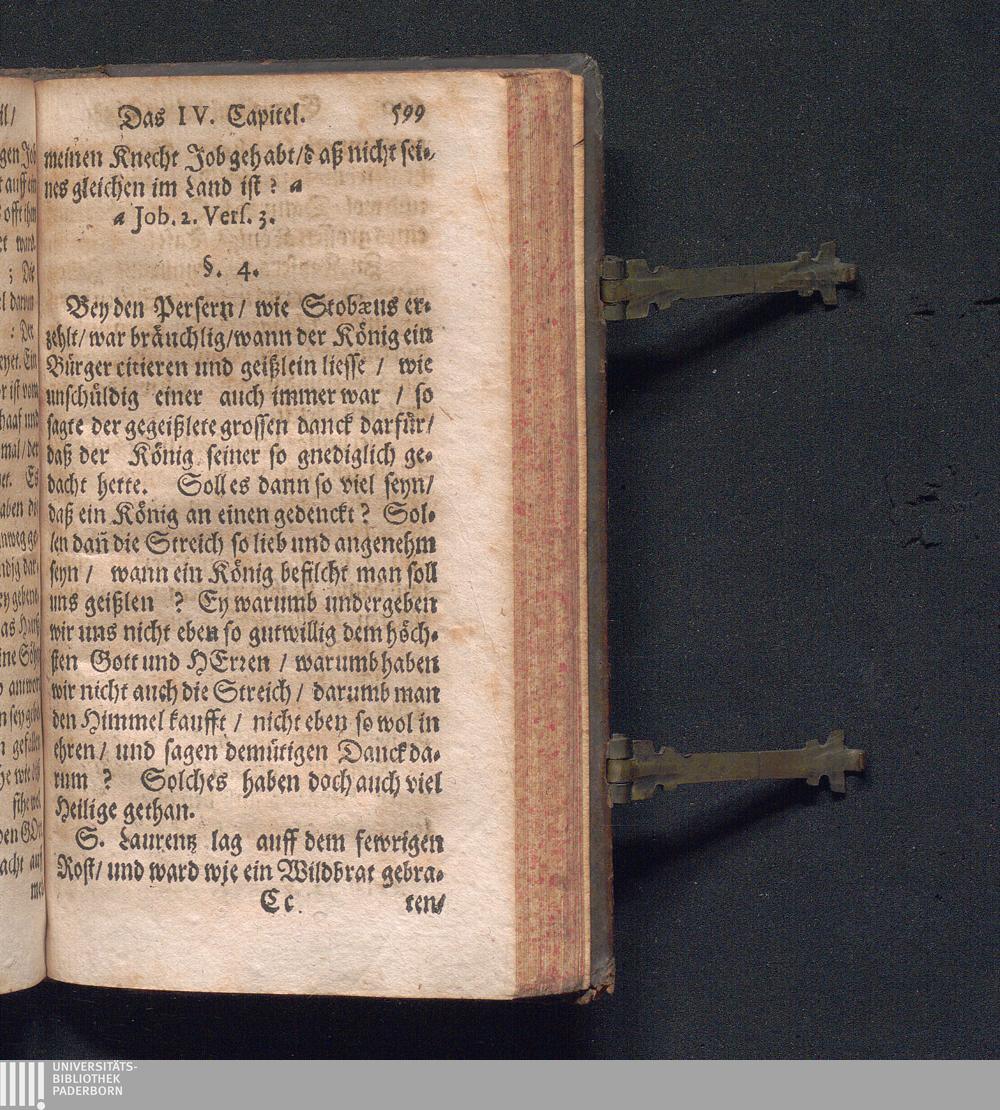 Das IV. Capitel. 599
meinen Knecht Job gehabt/d aß nicht sei-
nes gleichen im Land ist? a
a Job. 2. Vers. 3.
§. 4.
Bey den Persern / wie Stobæus er-
zehlt/ war bräuchlig/wann der König ein
Bürger citieren und geißlein liesse / wie
unschuldig einer auch immer war / so
sagte der gegeißlete grossen danck darfür/
daß der König seiner so gnediglich ge-
dacht hette. Soll es dann so viel seyn/
daß ein König an einen gedenckt? Sol-
len dañ die Streich so lieb und angenehm
seyn / wann ein König befilcht man soll
uns geißlen ? Ey warumb undergeben
wir uns nicht eben so gutwillig dem höch-
sten Gott und HErren / warumb haben
wir nicht auch die Streich / darumb man
den Himmel kaufft / nicht eben so wol in
ehren/ und sagen demütigen Danck da-
rum ? Solches haben doch auch viel
Heilige gethan.
S. Laurentz lag auff dem fewrigen
Rost/ und ward wie ein Wildbrat gebra-
Cc ten/
UNIVERSITÄTS-
BIBLIOTHEK
PADERBORN